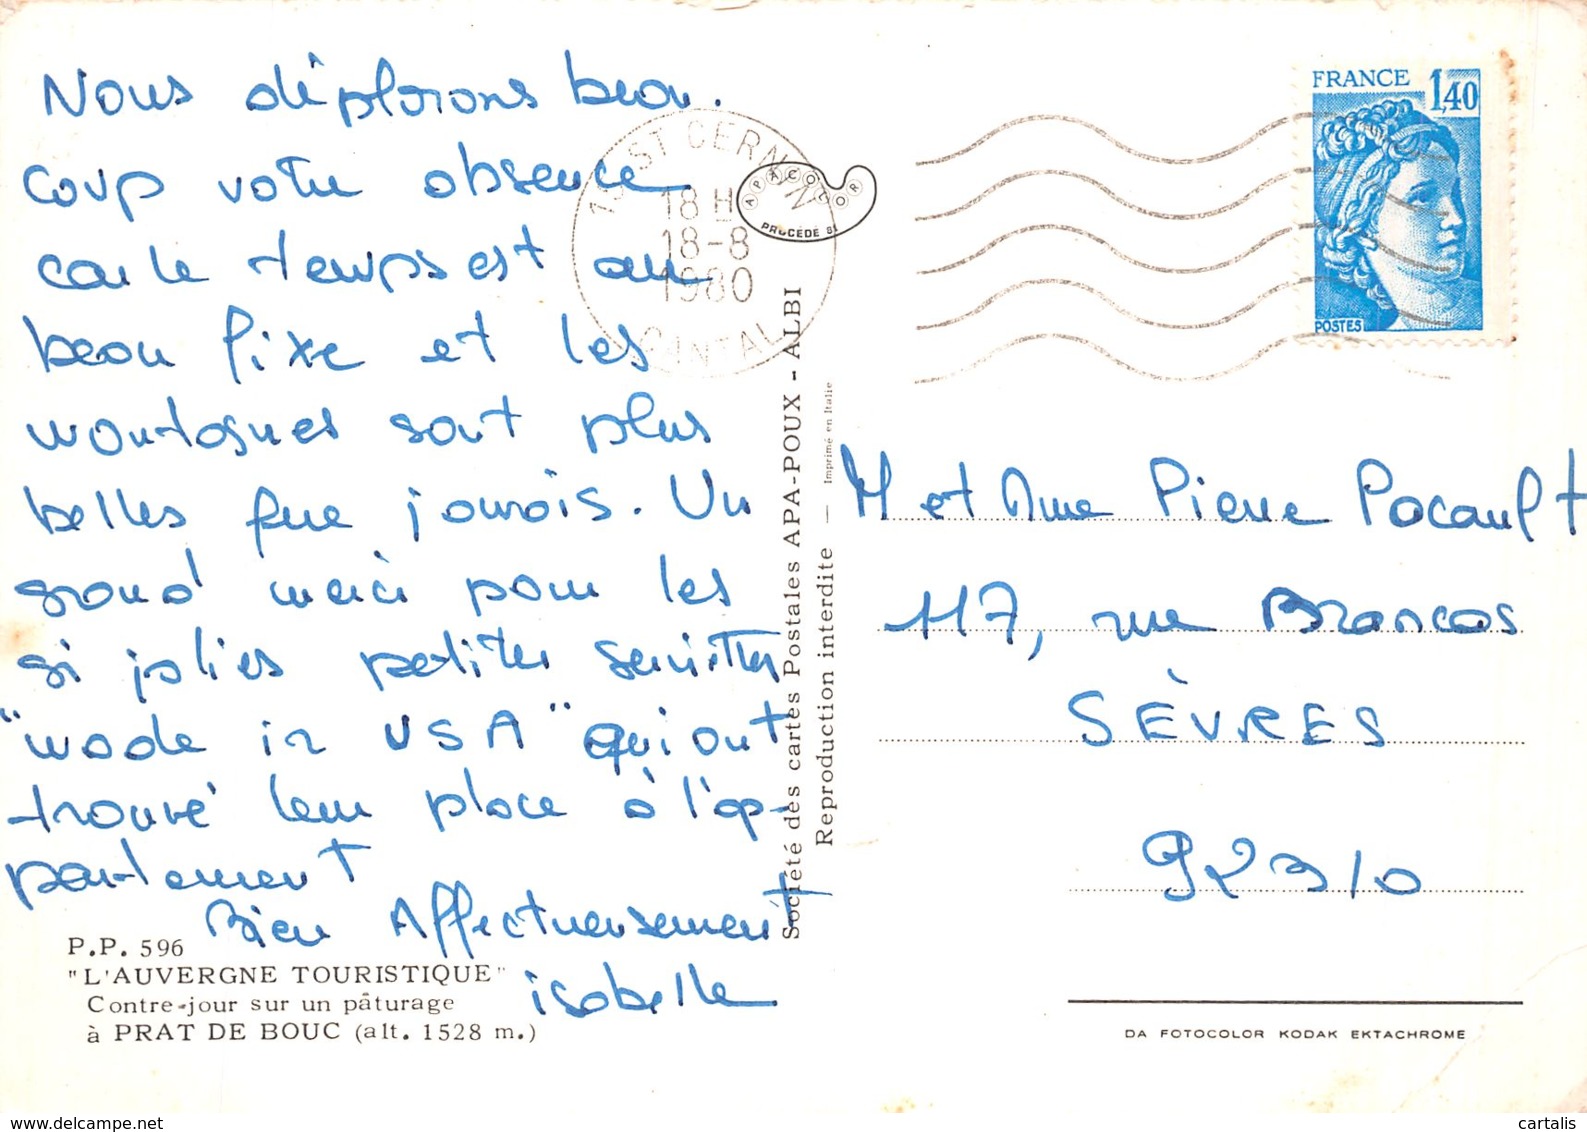 Nous déplorons beau.
coup votre absence
car le temps est au
beau fixe et les
montagnes sont plus
belles que jamais. Un
grand merci pour les
si jolies petites serviettes
"made in USA" qui ont
trouvé leur place à l'ap-
partement
Bien Affectueusement
isabelle
P.P. 596
"L'AUVERGNE TOURISTIQUE"
Contre-jour sur un pâturage
à PRAT DE BOUC (alt. 1528 m.)
15 ST CERNIN
18 H
18-8
1980
CANTAL
APACOLOR
PROCÉDÉ
Société des cartes Postales APA-POUX - ALBI
Reproduction interdite — Imprimé en Italie
FRANCE
1,40
POSTES
M et Mme Pierre Pocault
117, rue Brancas
SÈVRES
92310
DA FOTOCOLOR KODAK EKTACHROME
www.delcampe.net
cartalis